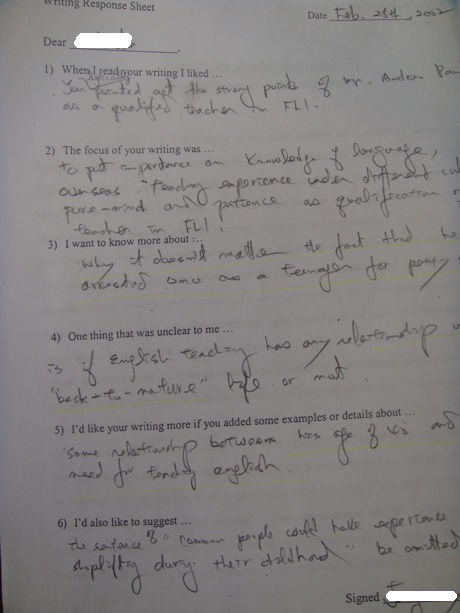 Writing Response Sheet
Date Feb. 25th, 2002
Dear
1) When I read your writing I liked …
You pointed out the strong points of Mr. Andrew
as a qualified teacher in FLI.
2) The focus of your writing was …
to put importance on knowledge of language,
overseas teaching experience under different
pure-mind and patience as qualification
teacher in FLI.
3) I want to know more about …
Why it doesn't matter the fact that he
arrested once as a teenager for petty
4) One thing that was unclear to me …
is if English teaching has any relationship
"back-to-nature" life or not.
5) I'd like your writing more if you added some examples or details about …
some relationship between his age of 40 and
need for teaching english.
6) I'd also like to suggest …
the sentence of "common people could have experience
shoplifting during their childhood" be omitted
Signed